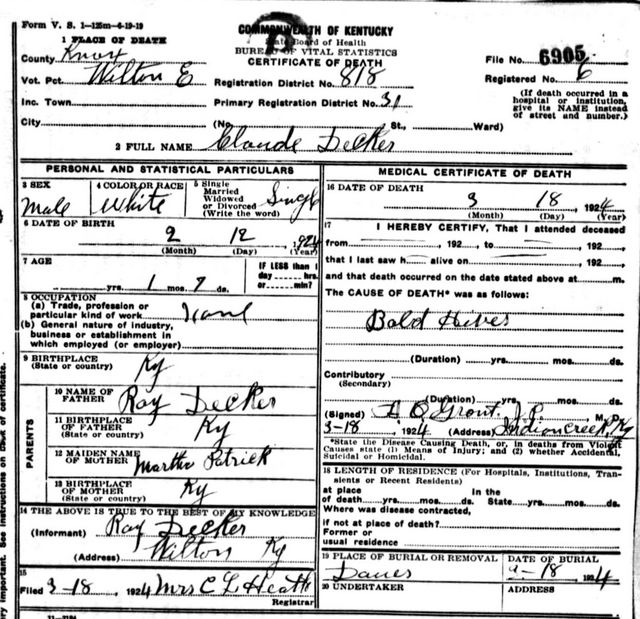 Form V. S. 1—125m—6-19-19
COMMONWEALTH OF KENTUCKY
State Board of Health
BUREAU OF VITAL STATISTICS
CERTIFICATE OF DEATH
1 PLACE OF DEATH
County Knox
Vot. Pct. Wilton E
Inc. Town
City
Registration District No. 818
Primary Registration District No. 31
(No. St., Ward)
File No. 6905
Registered No. 6
(If death occurred in a
hospital or institution,
give its NAME instead
of street and number.)
2 FULL NAME Claude Decker
PERSONAL AND STATISTICAL PARTICULARS
3 SEX
Male
4 COLOR OR RACE
White
5 Single
Married
Widowed
or Divorced
(Write the word)
Single
6 DATE OF BIRTH
2 12 1924
(Month) (Day) (Year)
7 AGE
yrs. 1 mos. 7 ds.
IF LESS than 1
day hrs.
or min?
8 OCCUPATION
(a) Trade, profession or
particular kind of work
(b) General nature of industry,
business or establishment in
which employed (or employer)
9 BIRTHPLACE
(State or country) Ky
PARENTS
10 NAME OF
FATHER Ray Decker
11 BIRTHPLACE
OF FATHER
(State or country) Ky
12 MAIDEN NAME
OF MOTHER Martha Patrick
13 BIRTHPLACE
OF MOTHER
(State or country) Ky
14 THE ABOVE IS TRUE TO THE BEST OF MY KNOWLEDGE
(Informant) Ray Decker
(Address) Wilton Ky
15
Filed 3-18, 1924 Mrs C L Heath
Registrar
MEDICAL CERTIFICATE OF DEATH
16 DATE OF DEATH
3 18, 1924
(Month) (Day) (Year)
17 I HEREBY CERTIFY, That I attended deceased
from , 192 , to , 192
that I last saw h alive on , 192
and that death occurred on the date stated above at m.
The CAUSE OF DEATH* was as follows:
Bold Hives
(Duration) yrs. mos. ds.
Contributory
(Secondary)
(Duration) yrs. mos. ds.
(Signed) Grant, J.P., M. D.
3-18, 1924 (Address) Indian Creek, Ky
*State the Disease Causing Death, or, in deaths from Violent
Causes state (1) Means of Injury; and (2) whether Accidental,
Suicidal or Homicidal.
18 LENGTH OF RESIDENCE (For Hospitals, Institutions, Tran-
sients or Recent Residents)
at place In the
of death yrs. mos. ds. State yrs. mos. ds.
Where was disease contracted,
if not at place of death?
Former or
usual residence
19 PLACE OF BURIAL OR REMOVAL
DATE OF BURIAL
18 1924
20 UNDERTAKER
ADDRESS